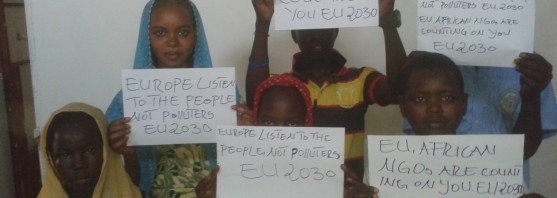 YOU EU2030
NOT POLLUTERS EU2030
EU AFRICAN NGOS ARE
COUNTING ON YOU
EU2030
EUROPE LISTEN
TO THE PEOPLE
NOT POLLUTERS
EU 2030
EUROPE LISTEN TO THE
PEOPLE NOT POLLUTERS
EU 2030
EU, AFRICAN
NGOs ARE COUN
TING ON YOU EU/2030